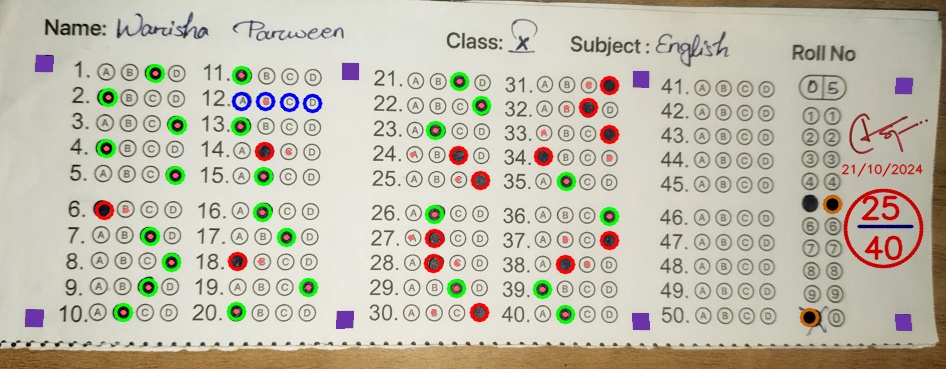 Name: Warisha Parween
Class: X Subject: English
Roll No
0 5
1. A B C D
2. A B C D
3. A B C D
4. A B C D
5. A B C D
6. A B C D
7. A B C D
8. A B C D
9. A B C D
10. A B C D
11. A B C D
12. A B C D
13. A B C D
14. A B C D
15. A B C D
16. A B C D
17. A B C D
18. A B C D
19. A B C D
20. A B C D
21. A B C D
22. A B C D
23. A B C D
24. A B C D
25. A B C D
26. A B C D
27. A B C D
28. A B C D
29. A B C D
30. A B C D
31. A B C D
32. A B C D
33. A B C D
34. A B C D
35. A B C D
36. A B C D
37. A B C D
38. A B C D
39. A B C D
40. A B C D
41. A B C D
42. A B C D
43. A B C D
44. A B C D
45. A B C D
46. A B C D
47. A B C D
48. A B C D
49. A B C D
50. A B C D
1 1
2 2
3 3
4 4
6 6
7 7
8 8
9 9
0
21/10/2024
25
40